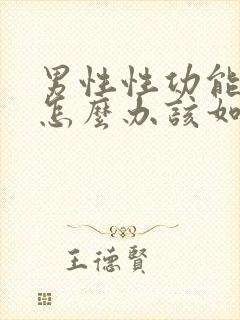 男性性功能
怎麼办該如
王德賢